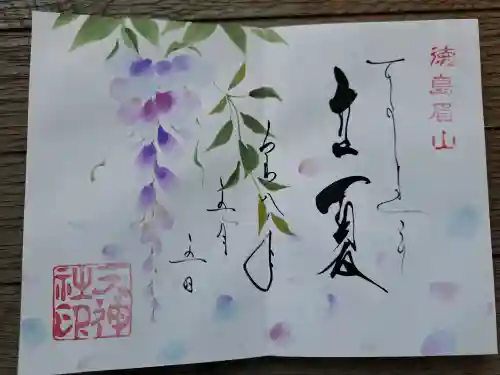 徳島眉山
立夏
令和八年
五月
五日
天神
社印